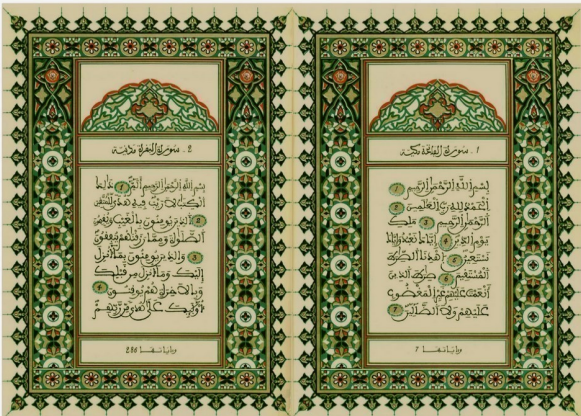 1 ـ سورة الفاتحة مكية
بسم الله الرحمن الرحيم 1
الحمد لله رب العالمين 2
الرحمن الرحيم 3 ملك
يوم الدين 4 إياك نعبد وإياك
نستعين 5 اهدنا الصراط
المستقيم 6 صراط الذين
أنعمت عليهم غير المغضوب
عليهم ولا الضالين 7
وءاياتها 7
2 ـ سورة البقرة مدنية
بسم الله الرحمن الرحيم الم 1 ذلك
الكتاب لا ريب فيه هدى للمتقين
2 الذين يومنون بالغيب ويقيمون
الصلوة ومما رزقناهم ينفقون
3 والذين يومنون بما أنزل
إليك وما أنزل من قبلك
وبالاخرة هم يوقنون 4
أولئك على هدى من ربهم
وءاياتها 286